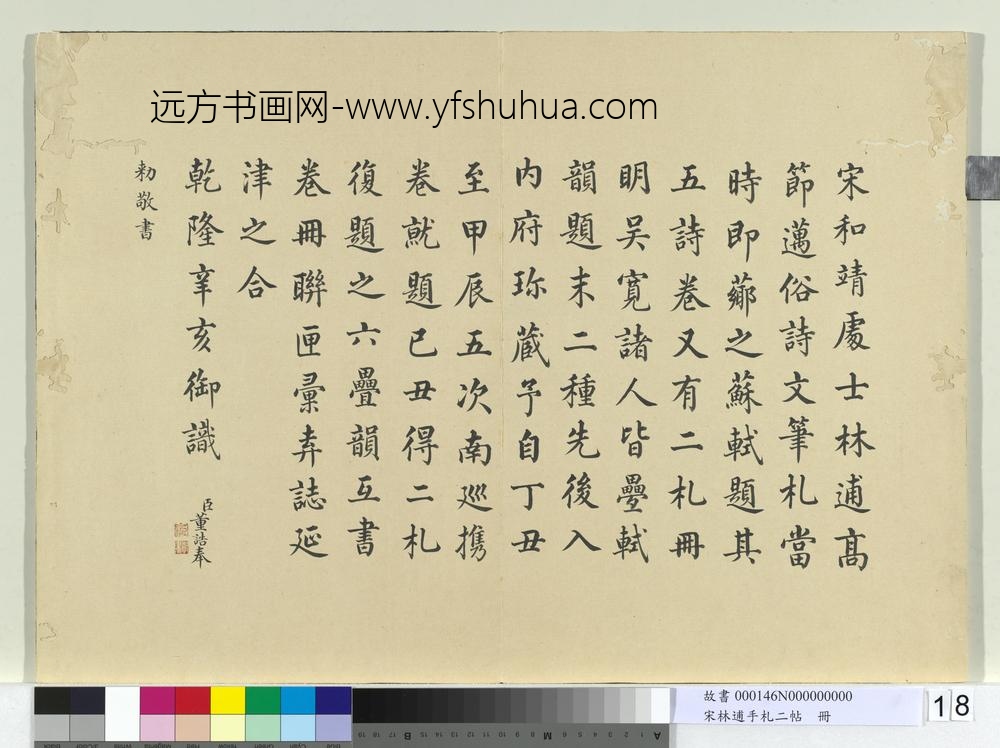 远方书画网-www.yfshuhua.com
宋和靖處士林逋高
節邁俗詩文筆札當
時即薌之蘇軾題其
五詩卷又有二札冊
明吴寬諸人皆疊軾
韻題末二種先後入
内府珎蔵予自丁丑
至甲辰五次南巡携
卷就題已丑得二札
復題之六疊韻互書
卷冊聯匣彙弆誌延
津之合
乾隆辛亥御識
臣董誥奉
勅敬書
故書 000146N000000000
宋林逋手札二帖 冊
18